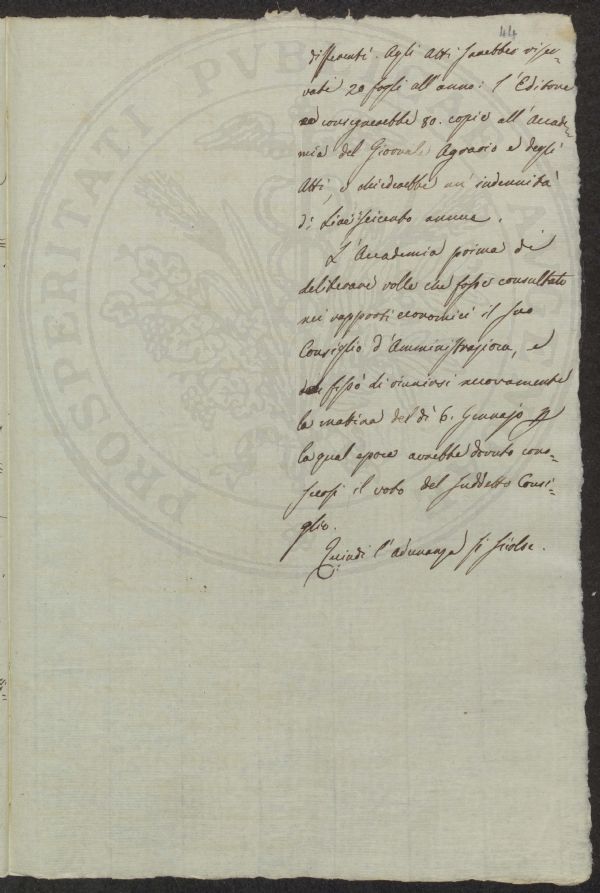 44
differenti. Agli Atti sarebber riser-
vati 20 fogli all'anno: l'Editore
consegnerebbe 80. copie all'Accade-
mia del Giornale Agrario e degli
Atti, e chiederebbe un'indennità
di Lire seicento annue.
L'Accademia prima di
deliberare volle che fosse consultato
nei rapporti economici il suo
Consiglio d'Amministrazione, e
fissò di riunirsi nuovamente
la mattina del dì 6. Gennajo p
la qual epoca avrebbe dovuto cono-
scersi il voto del suddetto Consi-
glio.
Quindi l'adunanza si sciolse.
PROSPERITATI PUBLICAE